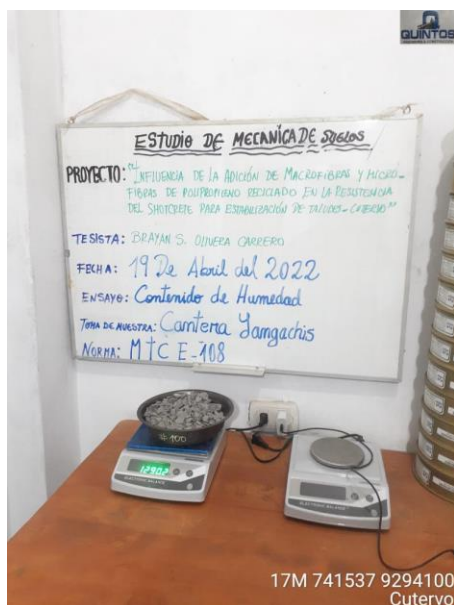 QUINTOS
ESTUDIO DE MECANICA DE SUELOS
PROYECTO: "INFLUENCIA DE LA ADICIÓN DE MACROFIBRAS Y MICRO-
FIBRAS DE POLIPROPILENO RECICLADO EN LA RESISTENCIA
DEL SHOTCRETE PARA ESTABILIZACIÓN DE TALUDES - CUTERVO"
TESISTA: BRAYAN S. OLIVERA CARRERO
FECHA: 19 De Abril del 2022
ENSAYO: Contenido de Humedad
TOMA DE MUESTRA: Cantera Yangachis
NORMA: MTC E-108
#100
1290.2
ELECTRONIC BALANCE
ELECTRONIC BALANCE
17M 741537 9294100
Cutervo